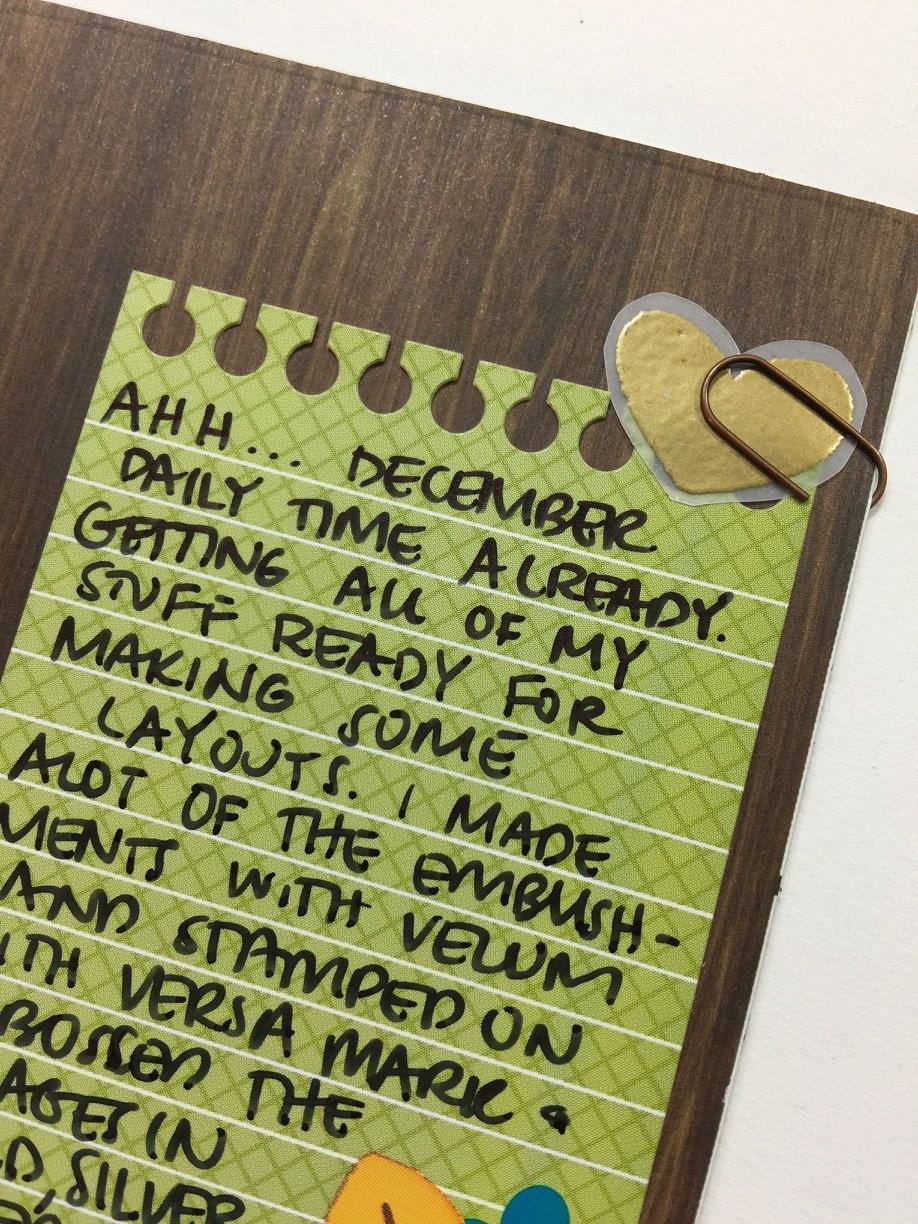 AHH... DECEMBER
DAILY TIME ALREADY.
GETTING ALL OF MY
STUFF READY FOR
MAKING SOME
LAYOUTS. I MADE
ALOT OF THE EMBLISH-
MENTS WITH VELUM
AND STAMPED ON
ITH VERSA MARK &
BOSSED THE
AGES IN
LD, SILVER